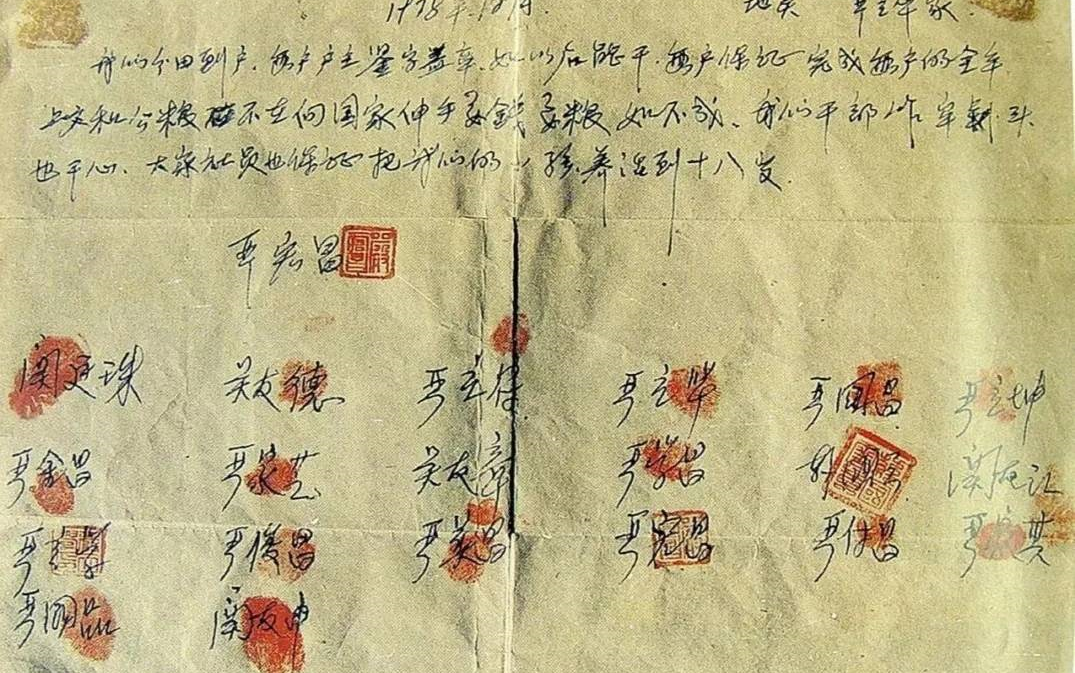 1978年12月. 地点 严立华家.
我们分田到户.每户户主签字盖章.如以后能干.每户保证完成每户的全年
上交和公粮不在向国家伸手要钱要粮如不成.我们干部作牢杀头
也干心.大家社员也保证把我们的小孩养活到十八岁.
严宏昌
关廷珠 关友德 严立符 严立华 严国昌 严立坤
严金昌 严家芝 关友章 严学昌 韩国云 关友江
严立学 严俊昌 严美昌 严宏昌 严付昌 严家其
严国品 关友申